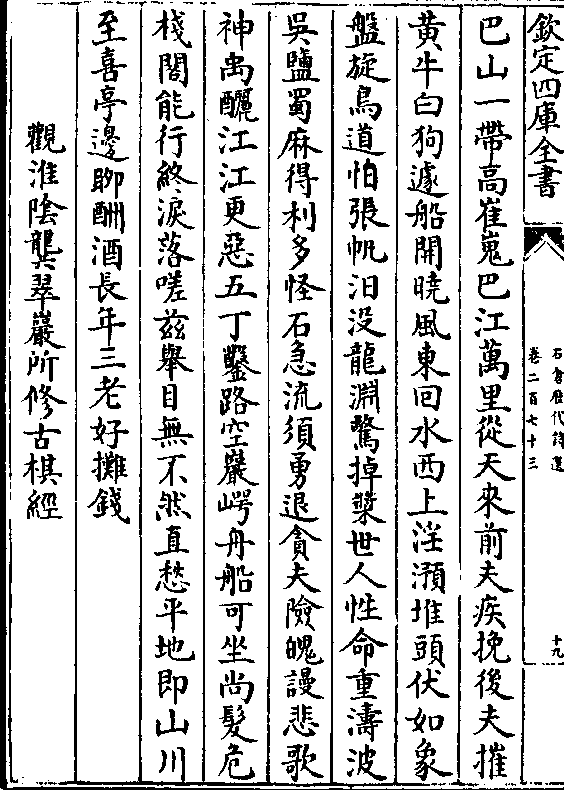 欽定四庫全書
石倉歷代詩選
卷二百七十三
十九
巴山一帶高崔嵬巴江萬里從天來前夫疾挽後夫摧
黄牛白狗遽船開曉風東回水西上淫澦堆頭伏如象
盤旋鳥道怕張帆汨没龍淵驚掉槳世人性命重濤波
吳鹽蜀麻得利多怪石急流須勇退貪夫險魄謾悲歌
神禹釃江江更惡五丁鑿路空巖崿舟船可坐尚髮危
棧閣能行終淚落嗟兹舉目無不然直愁平地即山川
至喜亭邊聊酬酒長年三老好攤錢
觀淮陰龔翠巖所修古棋經